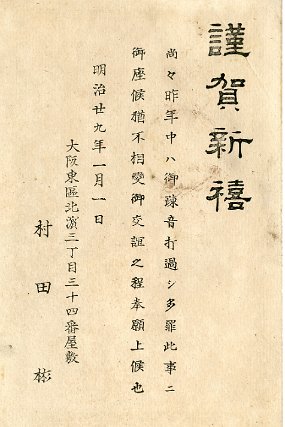 謹賀新禧
尚々昨年中ハ御疎音打過シ多罪此事ニ
御座候猶不相變御交誼之程奉願上候也
明治廿九年一月一日
大阪東區北濵三丁目三十四番屋敷
村田彬